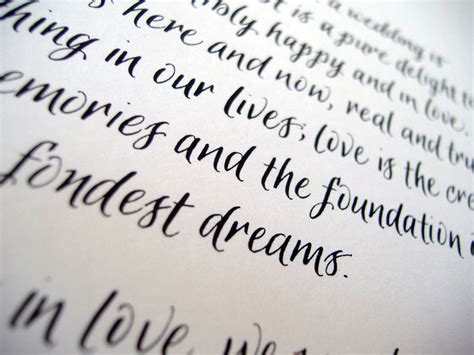 a wedding is
ibly happy and in love,
is here and now, real and tru
hing in our lives; love is the cre
emories and the foundation
fondest dreams.
in love, we